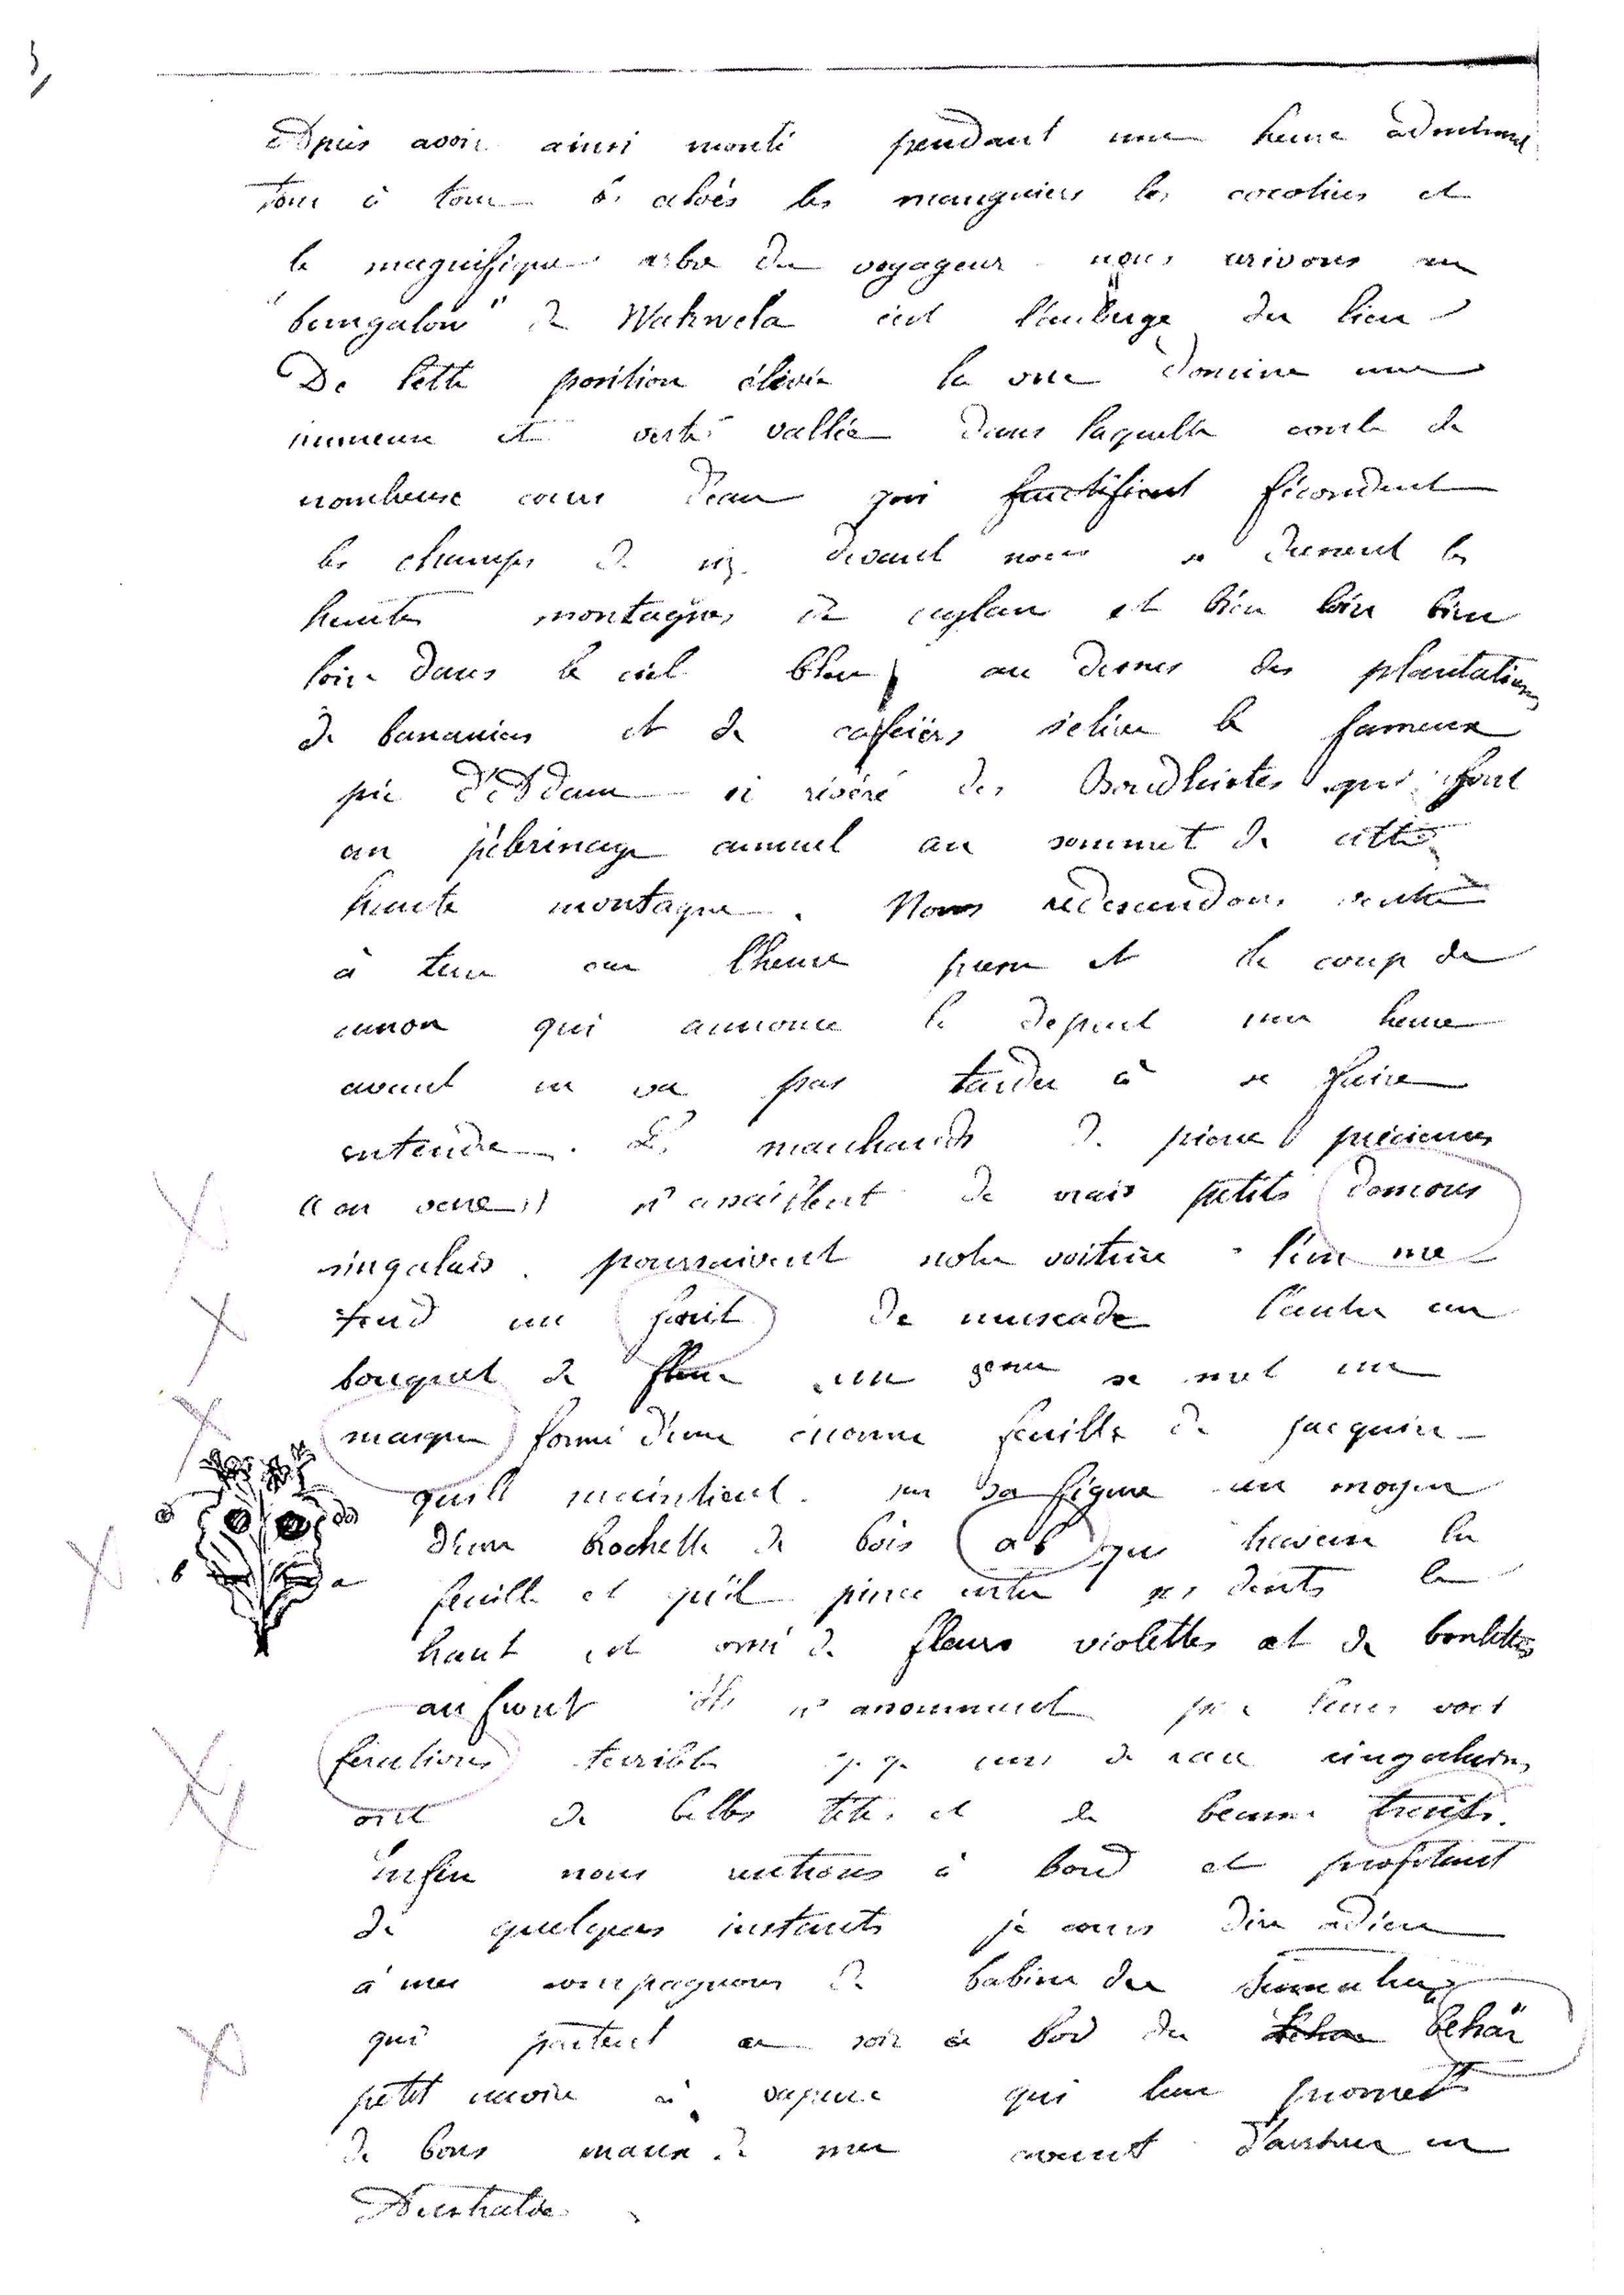 Après avoir ainsi monté pendant une heure admirant
tour à tour les aloès les manguiers les cocotiers et
le magnifique arbre du voyageur nous arivons au
"bungalow" de Wakwela c'est l'auberge du lieu
De cette position élevée la vue domine une
immense et verte vallée dans laquelle coule de
nombreux cours d'eau qui fructifient fécondent
les champs de riz. devant nous se dressent les
hautes montagnes de ceylan et bien loin bien
loin dans le ciel bleu, au dessus des plantations
de bananiers et de caféiers s'élève le fameux
pic d'Adam si révéré des Boudhistes qui font
un pélerinage annuel au sommet de cette
haute montagne. Nous redescendons ventre
à terre car l'heure presse et le coup de
canon qui annonce le depart une heure
avant ne va pas tarder à se faire
entendre. Les marchands de pierres précieuses
"en verre" m'assaillent de vrais petits demons
singalais. poursuivent notre voiture. l'un me
tend un fruit de muscade l'autre un
bouquet de fleur un 3eme se met un
masque formé d'une énorme feuille de jacquier
qu'il maintient sur sa figure au moyen
d'une brochette de bois ab qui traverse la
feuille et qu'il pince entre ses dents le
haut est orné de fleurs violettes et de boulettes
au front Ils m'assomment par leurs voci
ferations terribles ces gens de race singalaise
ont de belles têtes et de beaux traits.
Enfin nous rentrons à bord et profitant
de quelques instants je cours dire adieu
à mes compagnons de cabine du Sumatra
qui partent ce soir à bord du behar "behär
petit navire à vapeur qui leur promet
de bons maux de mer avant d'arriver en
Australie
b a